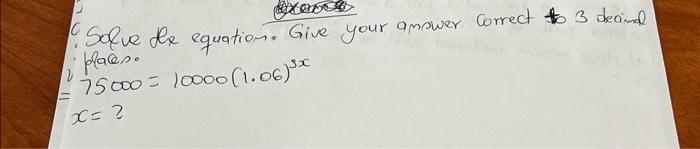 Solve the equation. Give your answer correct to 3 decimal
places.
75000 = 10000(1.06)^3x
x = ?